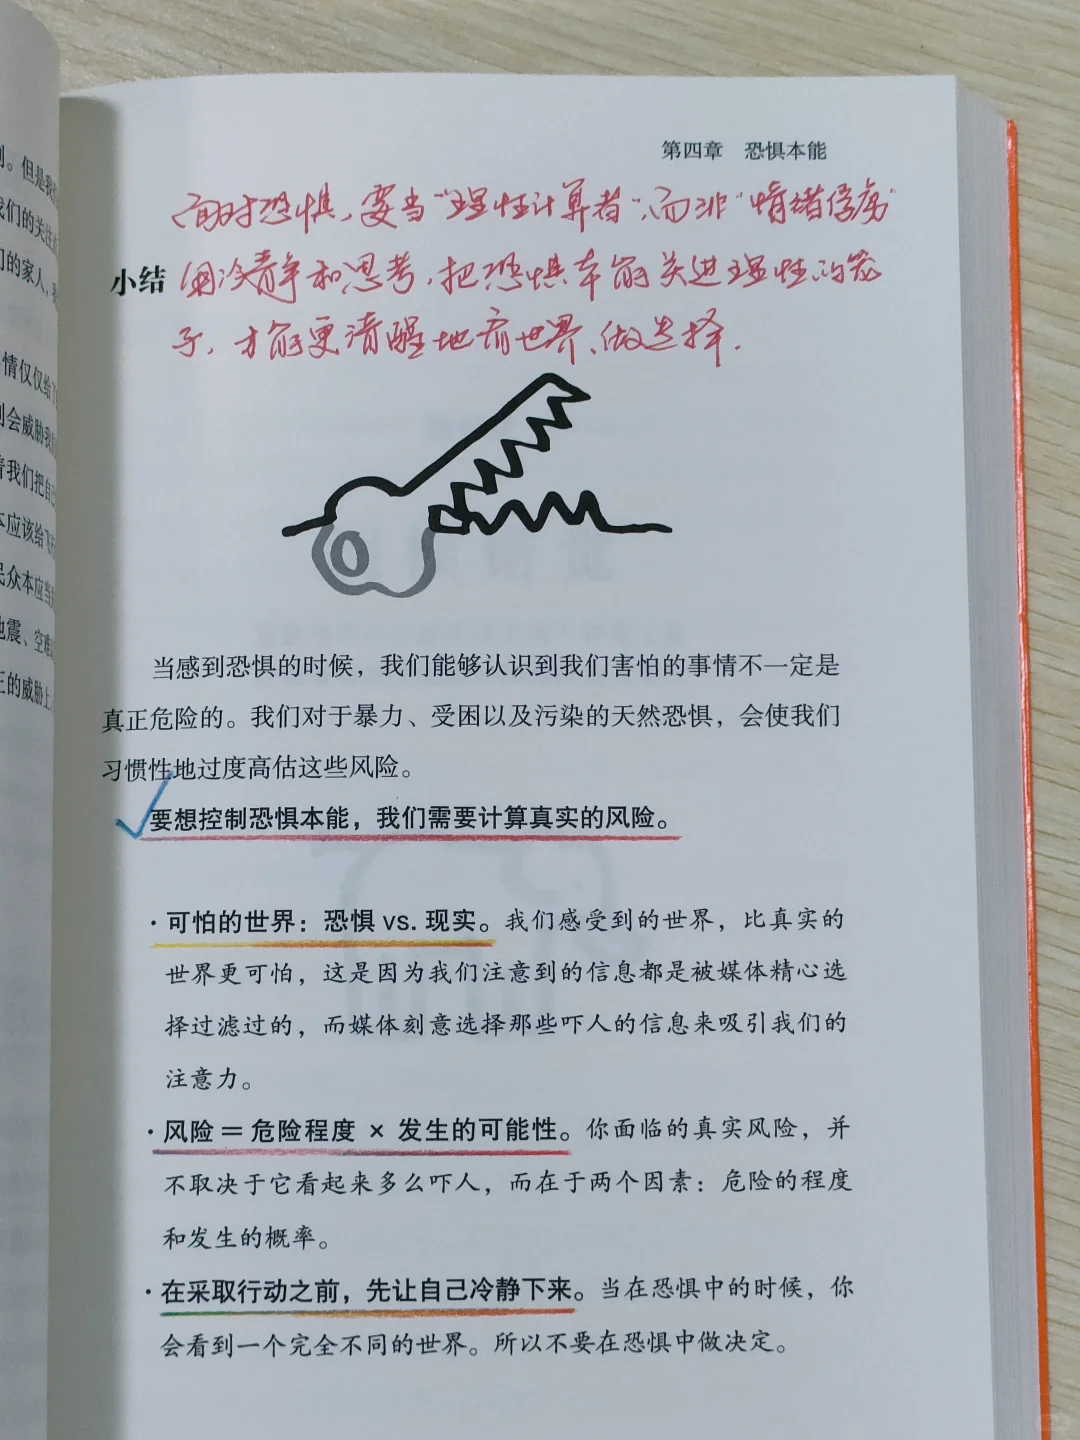 第四章 恐惧本能
面对恐惧，要当“理性计算者”，而非“情绪俘虏”
小结
用冷静和思考，把恐惧本能关进理性的笼
子，才能更清醒地看世界、做选择.
当感到恐惧的时候，我们能够认识到我们害怕的事情不一定是
真正危险的。我们对于暴力、受困以及污染的天然恐惧，会使我们
习惯性地过度高估这些风险。
要想控制恐惧本能，我们需要计算真实的风险。
·可怕的世界：恐惧 vs. 现实。我们感受到的世界，比真实的
世界更可怕，这是因为我们注意到的信息都是被媒体精心选
择过滤过的，而媒体刻意选择那些吓人的信息来吸引我们的
注意力。
·风险＝危险程度 × 发生的可能性。你面临的真实风险，并
不取决于它看起来多么吓人，而在于两个因素：危险的程度
和发生的概率。
·在采取行动之前，先让自己冷静下来。当在恐惧中的时候，你
会看到一个完全不同的世界。所以不要在恐惧中做决定。
。但是我
我们的关注
们的家人，
情仅仅给
会威胁我
着我们把自
本应该给飞
民众本应当
地震、空难
正的威胁上